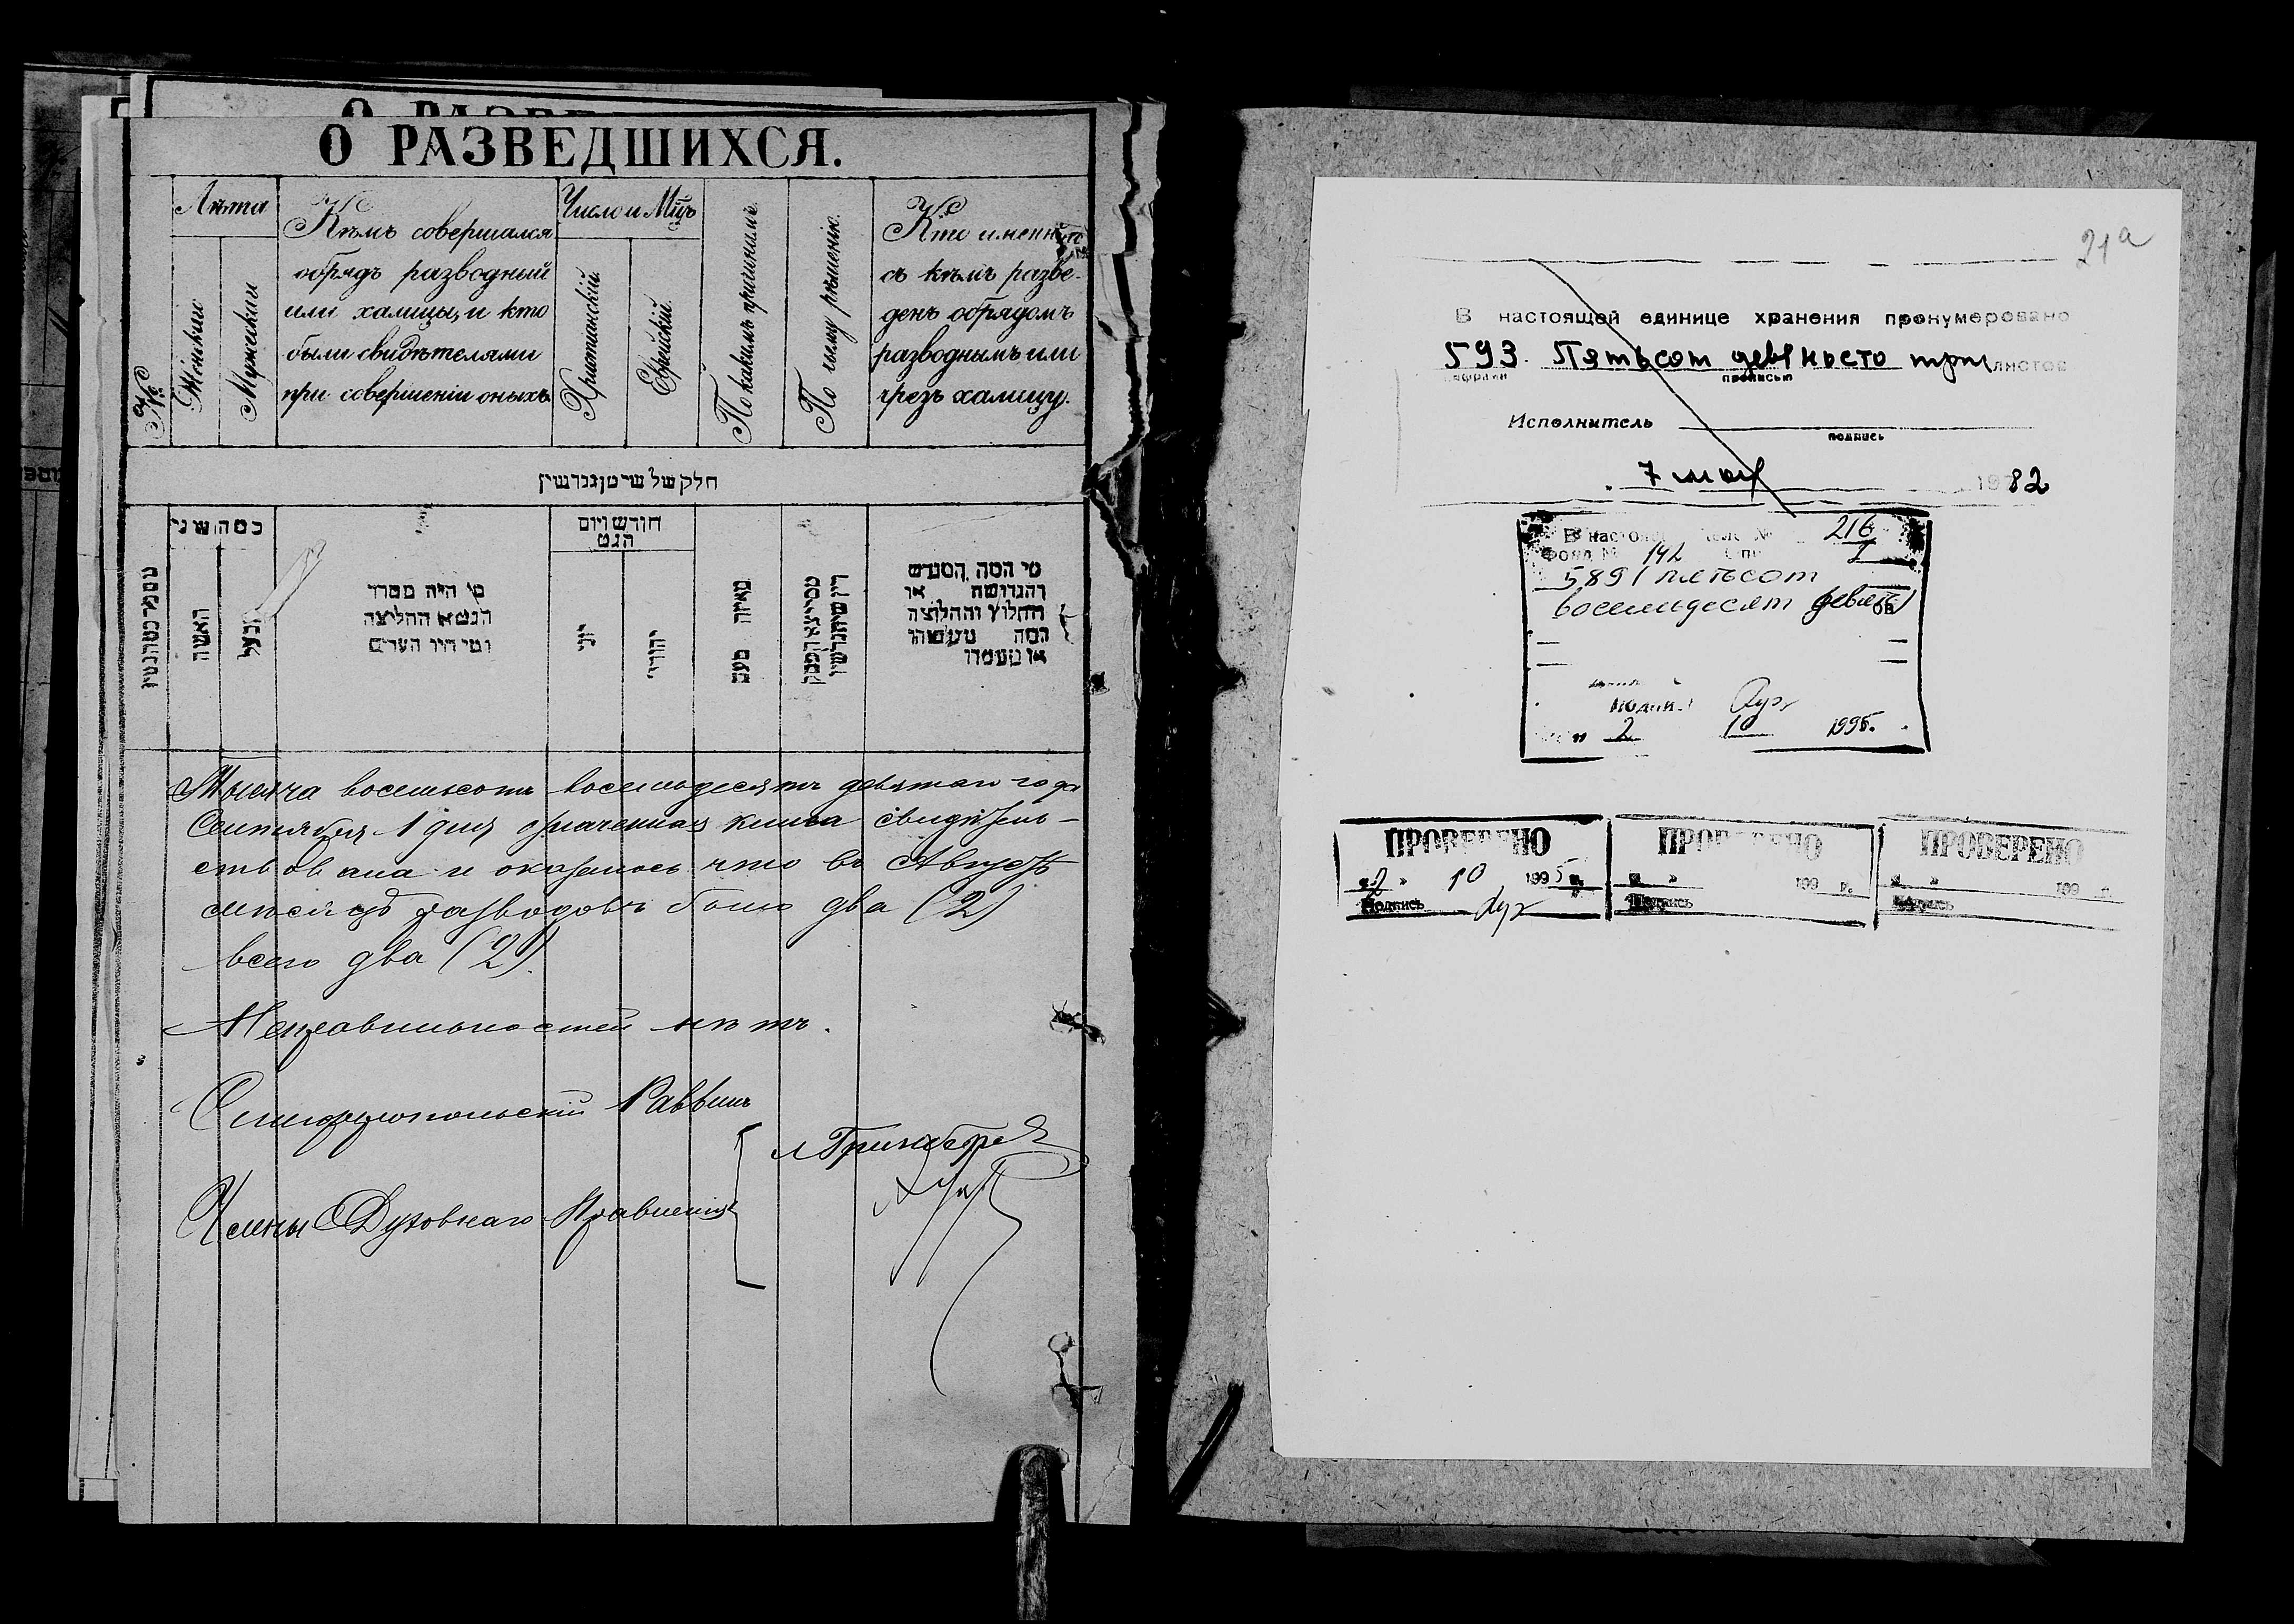 О РАЗВЕДШИХСЯ.
№
Лѣта
Женскии
Мужескии
Кѣмъ совершался
обрядъ разводный
или халицы, и кто
были свидѣтелями
при совершеніи оныхъ.
Число и Мцъ
Христіанскій.
Еврейскій.
По какимъ причинамъ.
По чьему рѣшенію.
Кто именно
съ кѣмъ разве-
денъ обрядомъ
разводнымъ или
чрезъ халицу.
חלק של שי מן גרושין
כמה שני
האשה
הבעל
מי היה מסדר
הגט או החליצה
ומי היו העדים
חודש ויום
הגט
יוני
יהודי
מאיזה טעם
מי המה המגרש
והגרושה או
החלוץ והחלוצה
Тысяча восемьсотъ восемьдесятъ девятаго года
Сентября 1 дня означенная книга свидѣтель-
ствована и оказалось что въ Августѣ
мѣсяцѣ разводовъ было два (2)
всего два (2).
Неправильностей нѣтъ.
Симферопольскій Раввинъ
Члены Духовнаго Правленія
21а
В настоящей единице хранения пронумеровано
593. Пятьсот девяносто три листов
цифрами прописью
Исполнитель
подпись
7 мая 1982
В настоящ деле № 216
Фонд № 142 Опи 1
589 (пятьсот
восемьдесят девять)
2 10 1995.
ПРОВЕРЕНО
« 2 » 10 1995 г.
Подпись
ПРОВЕРЕНО
« » 199 г.
Подпись
ПРОВЕРЕНО
« » 199 г.
Подпись